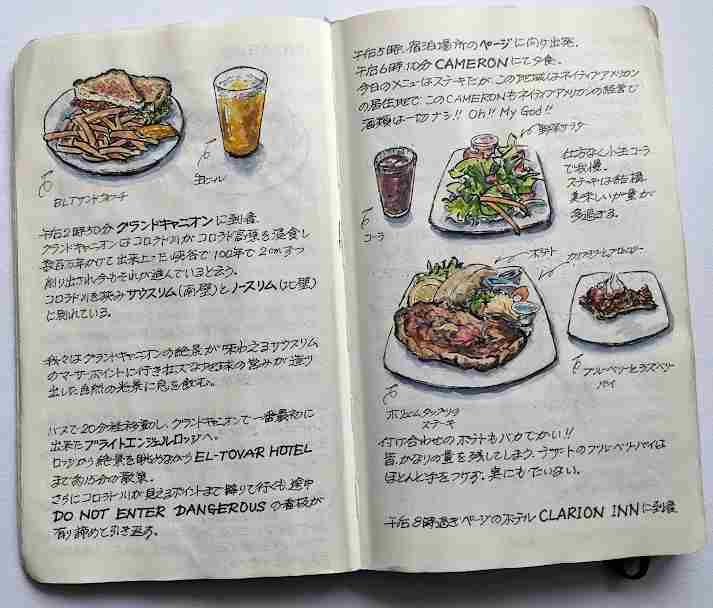 BLTサンドウィッチ
生ビール
午后2時30分 グランドキャニオンに到着
グランドキャニオンはコロラド川がコロラド高原を浸食し
数百万年かけて出来上った峡谷で100年で2cmずつ
削り出され今もそれが進んでいると云う。
コロラド川を挟みサウスリム(南壁)とノースリム(北壁)
に別れている。
我々はグランドキャニオンの絶景が味わえるサウスリム
のマーザーポイントに行き壮大な地球の営みが造り
出した自然の光景に息を飲む。
バスで20分程移動し、グランドキャニオンで一番最初に
出来たブライトエンジェルロッジへ。
ロッジから絶景を眺めながらEL-TOVAR HOTEL
まであり5分の散策。
さらにコロラド川が見えるポイントまで降りて行くも途中
DO NOT ENTER DANGEROUS の看板が
有り諦めて引き返す。
午后5時、宿泊場所のページに向け出発。
午后6時10分 CAMERONにて夕食。
今日のメニューはステーキだが、この地域はネイティブアメリカン
の居住地で、このCAMERONもネイティブアメリカンの経営で
酒類は一切ナシ!! Oh!! My God!!
野菜サラダ
仕方なく小生コーラ
で我慢。
ステーキは結構
美味しいが量が
多過ぎる。
コーラ
ポテト
カリフラワーとブロッコリー
ブルーベリーとラズベリー
パイ
ステーキ
付け合わせのポテトもバカでかい!!
皆、かなりの量を残してしまう。デザートのブルーベリーパイは
ほとんど手をつけず。実にもったいない。
午后8時過ぎページのホテル CLARION INNに到着